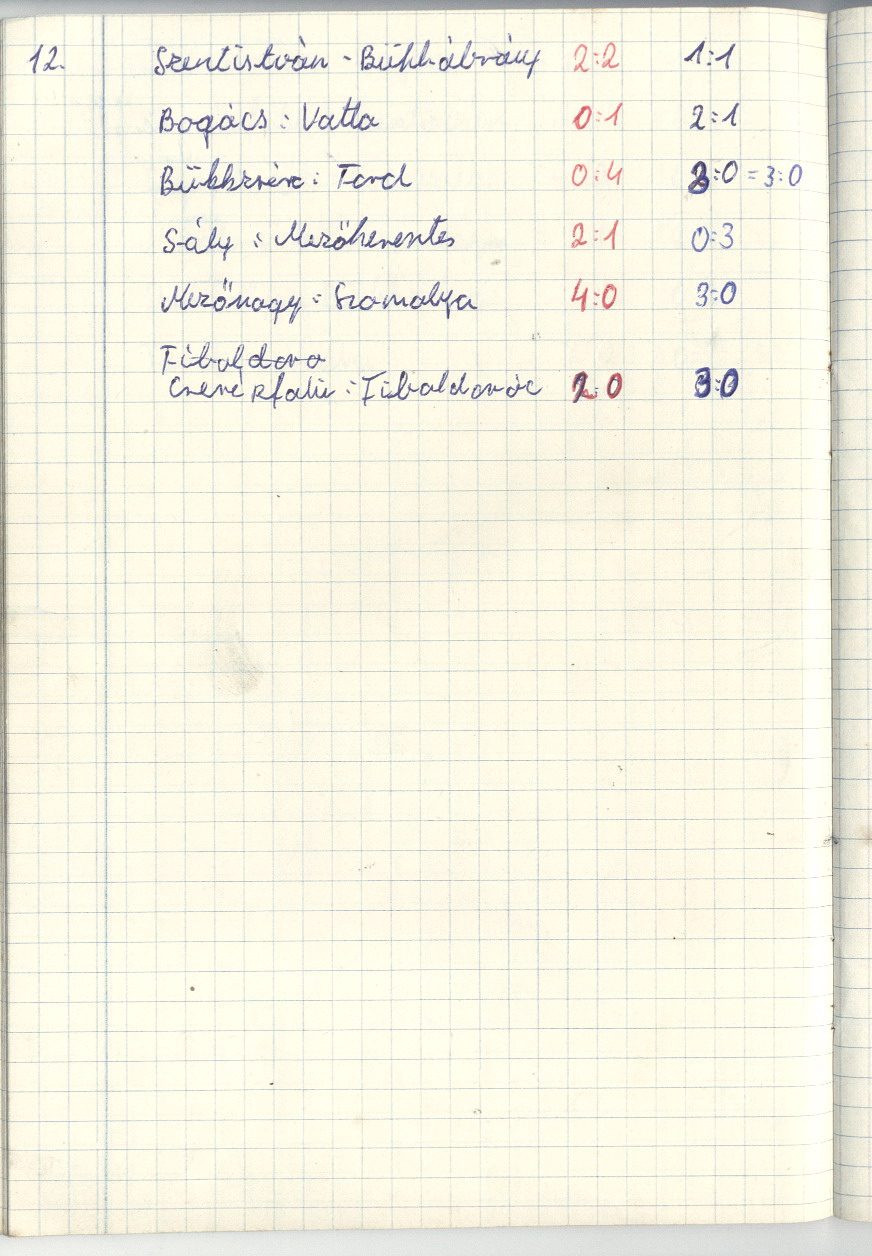 12. Szentistván - Bükkábrány 2:2 1:1
Bogács : Vatta 0:1 2:1
Bükkzsérc : Tard 0:4 3:0 = 3:0
Sály : Mezőkeresztes 2:1 0:3
Mezőnagy : Szomolya 4:0 3:0
Tibolddaro
Cserépfalu : Tibolddaróc 2:0 3:0